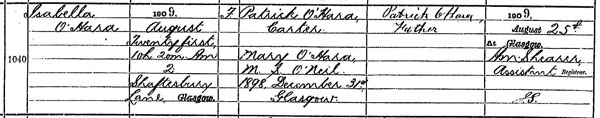 Isabella O'Hara
1040
1909,
August
Twenty first,
10h 20m AM
2
Shaftesbury
Lane, Glasgow.
F
Patrick O'Hara,
Carter.
Mary O'Hara,
M. S. O'Neil.
1898, December 31st
Glasgow.
Patrick O'Hara,
Father
1909,
August 25th
At Glasgow.
Wm Shearer,
Assistant Registrar.